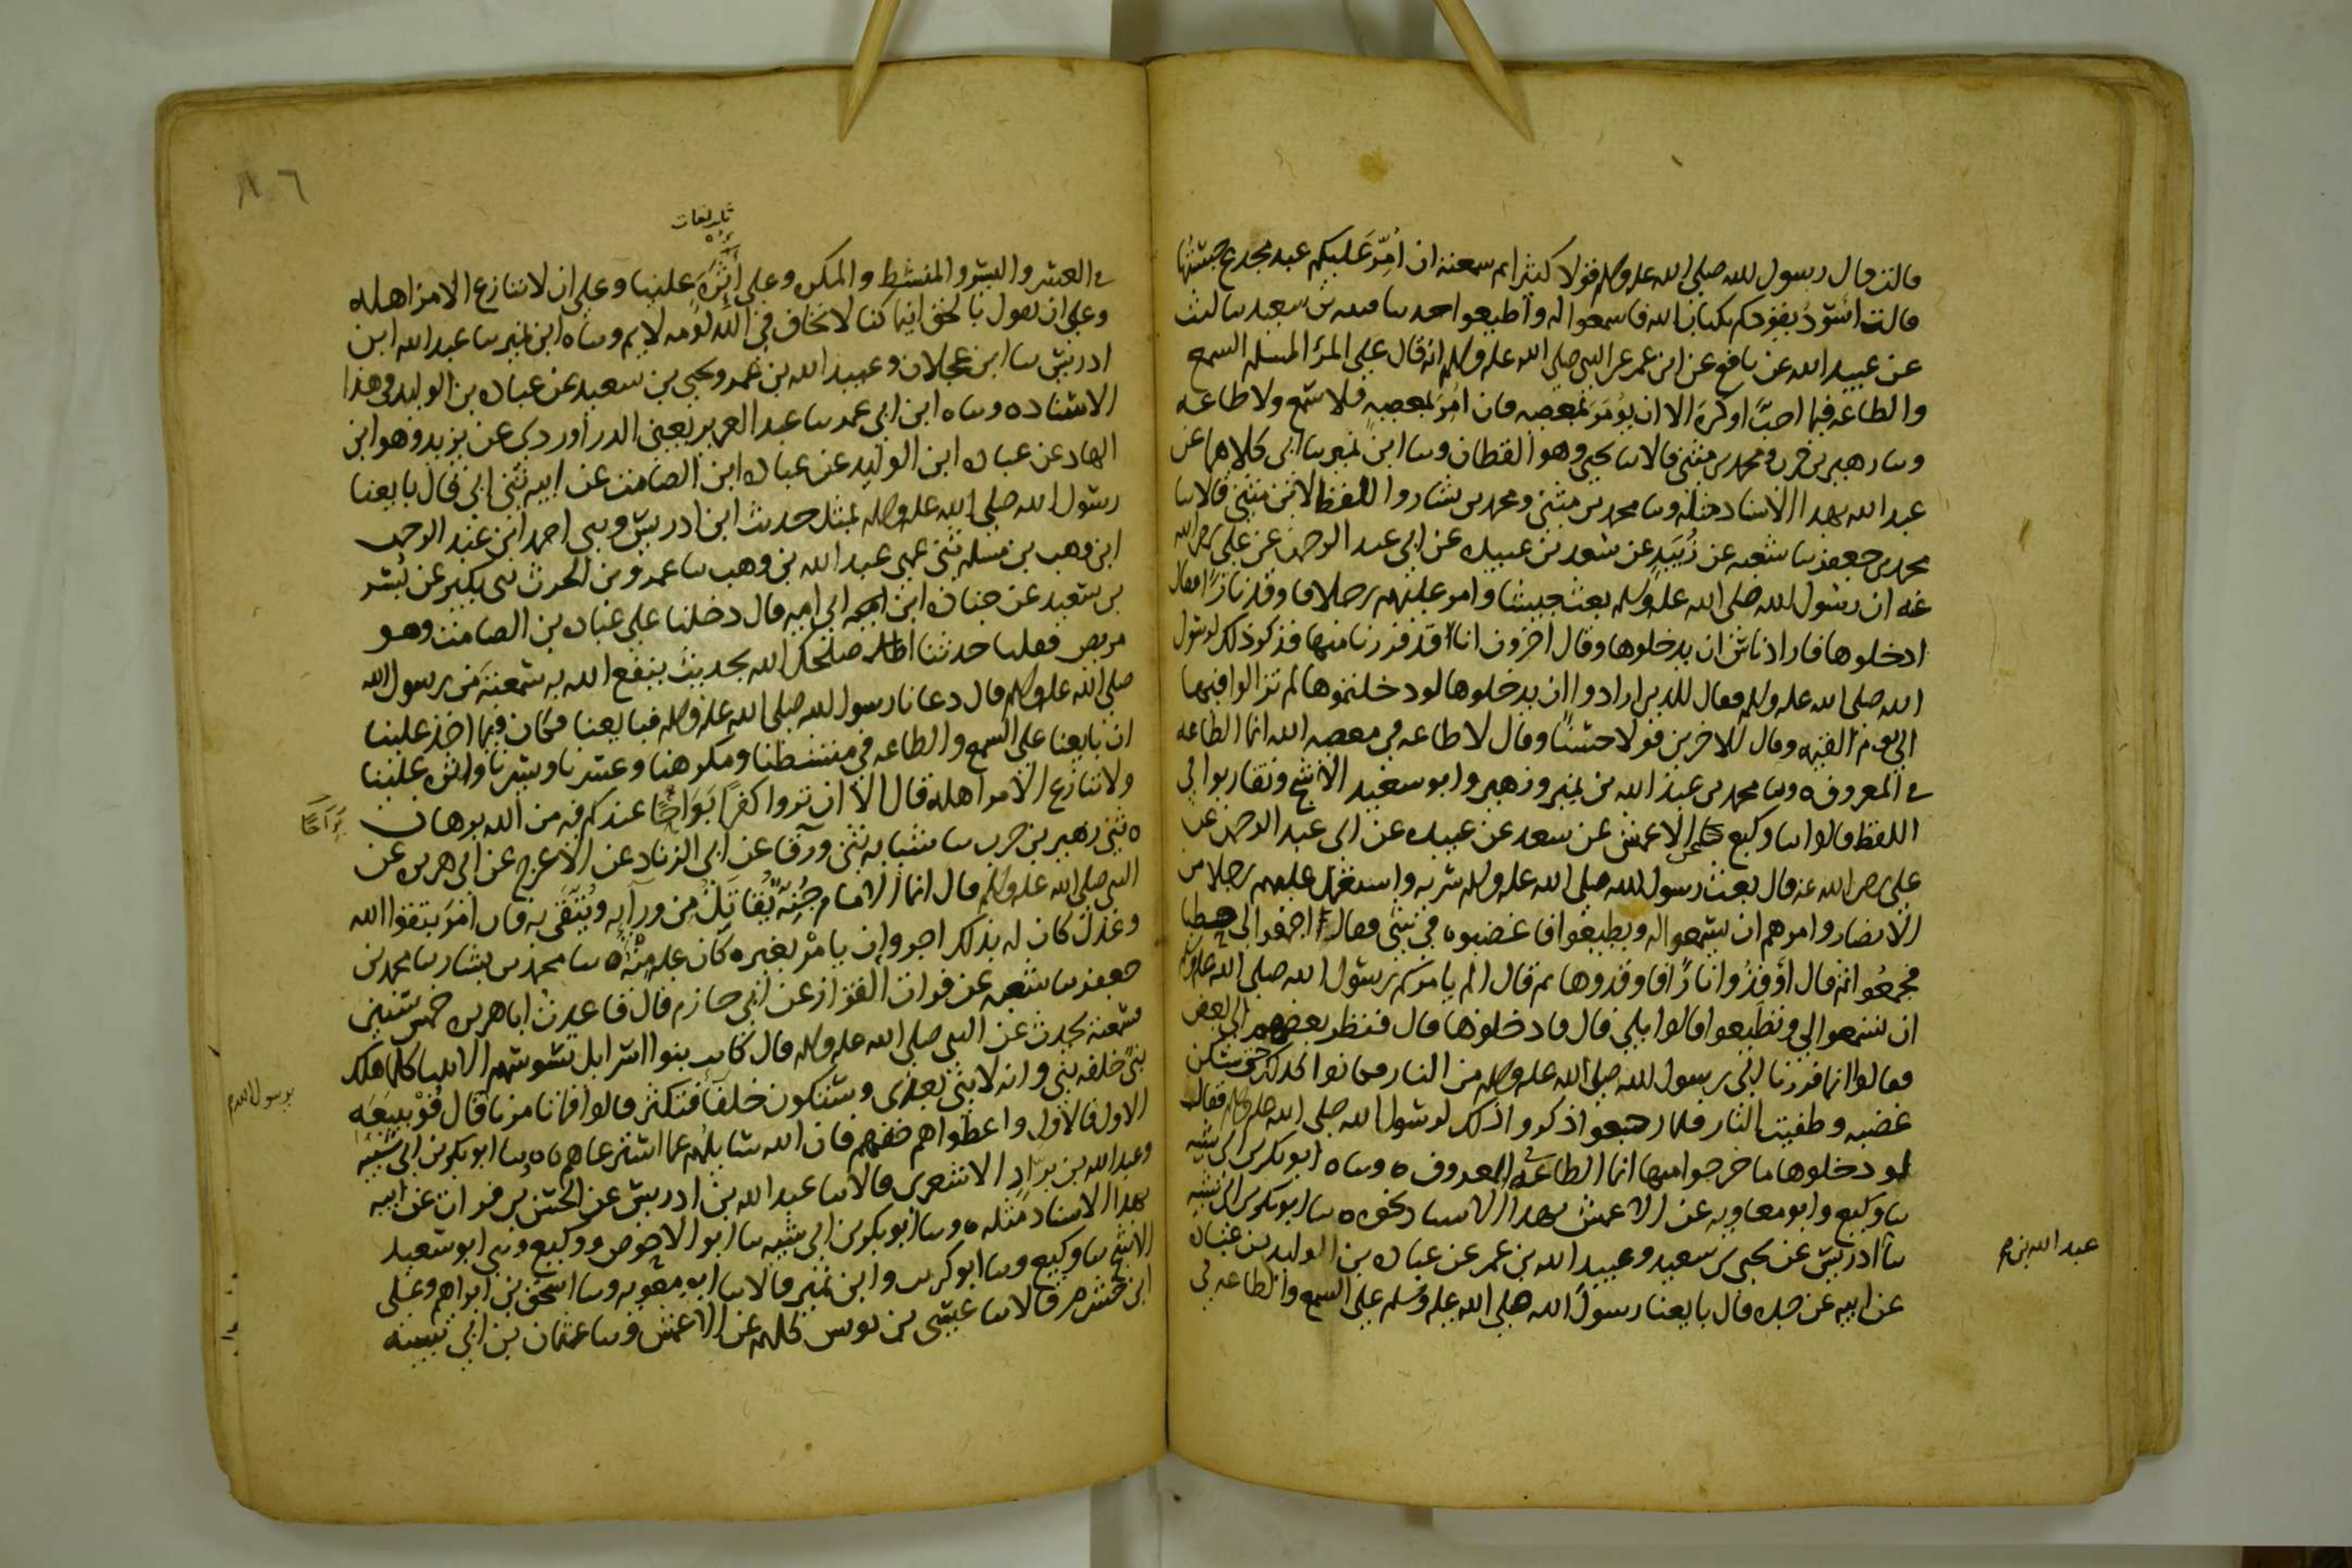 قالت فقال رسول الله صلى الله عليه وسلم قولا كثيرا ثم سمعته ان أمّر عليكم عبد مجدع حسبتها
قالت اسود يقودكم بكتاب الله فاسمعوا له واطيعوا حدثنا قتيبة بن سعيد ثنا ليث
عن عبيد الله عن نافع عن ابن عمر عن النبي صلى الله عليه وسلم انه قال على المرء المسلم السمع
والطاعة فيما احبّ او كره الا ان يؤمر بمعصية فان امر بمعصية فلا سمع ولا طاعة
وثنا زهير بن حرب ومحمد بن مثنى قالا ثنا يحيى وهو القطان وثنا ابن نمير ثنا ابي كلاهما عن
عبيد الله بهذا الاسناد مثله وثنا محمد بن مثنى ومحمد بن بشار واللفظ لابن مثنى قالا ثنا
محمد بن جعفر ثنا شعبة عن زُبَيد عن سعد بن عبيدة عن ابي عبد الرحمن عن علي رضي الله
عنه ان رسول الله صلى الله عليه وسلم بعث جيشا وامر عليهم رجلا فاوقد نارًا فقال
ادخلوها فاراد ناس ان يدخلوها وقال آخرون انا قد فررنا منها فذكر ذلك لرسول
الله صلى الله عليه وسلم فقال للذين ارادوا ان يدخلوها لو دخلتموها لم تزالوا فيها
الى يوم القيمة وقال للاخرين قولا حسنًا وقال لا طاعة في معصية الله انما الطاعة
في المعروف ه وثنا محمد بن عبد الله بن نمير وزهير وابو سعيد الأشج وتقاربوا في
اللفظ قالوا ثنا وكيع الاعمش عن سعد عن عبيدة عن ابي عبد الرحمن عن
علي رضي الله عنه قال بعث رسول الله صلى الله عليه وسلم سرية واستعمل عليهم رجلا من
الانصار وامرهم ان يسمعوا له ويطيعوا فاغضبوه في شيء فقال اجمعوا لي حطبا
فجمعُوا ثم قال أوقدُوا نارًا فاوقدوها ثم قال الم يامركم رسول الله صلى الله عليه وسلم
ان تسمعوا لي وتطيعوا قالوا بلى قال فادخلوها قال فنظر بعضهم الى بعض
فقالوا انما فررنا الى رسول الله صلى الله عليه وسلم من النار فكانوا كذلك حتى سكن
غضبه وطفيت النار فلما رجعوا ذكروا ذلك لرسول الله صلى الله عليه وسلم فقال
لو دخلوها ما خرجوا منها انما الطاعة في المعروف ه وثناه ابو بكر بن ابي شيبة
ثنا وكيع وابو معاوية عن الاعمش بهذا الاسناد نحوه ه ثنا ابو بكر بن ابي شيبة
ثنا ادريس عن يحيى بن سعيد وعبيد الله بن عمر عن عبادة بن الوليد بن عبادة
عن ابيه عن جده قال بايعنا رسول الله صلى الله عليه وسلم على السمع والطاعة في
عبد الله بن
في العسر واليسر والمنشط والمكره وعلى أَثَرَةٍ علينا وعلى ان لا ننازع الامر اهله
وعلى ان نقول بالحق اينما كنا لا نخاف في الله لومة لايم وثناه ابن نمير ثنا عبد الله ابن
ادريس ثنا ابن عجلان وعبيد الله بن عمر ويحيى بن سعيد عن عبادة بن الوليد في هذا
الاسناد ه وثناه ابن ابي عمر ثنا عبد العزيز يعني الدراوردي عن يزيد وهو ابن
الهاد عن عبادة ابن الوليد عن عبادة ابن الصامت عن ابيه ثني ابي قال بايعنا
رسول الله صلى الله عليه وسلم بمثل حديث ابن ادريس وثني احمد ابن عبد الرحمن
ابن وهب بن مسلم ثني عمي عبد الله بن وهب ثنا عمرو بن الحرث ثني بكير عن بُسر
بن سعيد عن جنادة ابن ابي امية قال دخلنا على عبادة بن الصامت وهو
مريض فقلنا حدثنا اصلحك الله بحديث ينفع الله به سمعته من رسول الله
صلى الله عليه وسلم قال دعانا رسول الله صلى الله عليه وسلم فبايعنا فكان فيما اخذ علينا
ان بايعنا على السمع والطاعة في منشطنا ومكرهنا وعسرنا ويسرنا واثرة علينا
ولا ننازع الامر اهله قال الا ان تروا كفرًا بَوَاحًا عندكم فيه من الله برهان
بَوَاحًا
ه ثني زهير بن حرب ثنا شبابة ثني ورقا عن ابي الزناد عن الاعرج عن ابي هريرة عن
النبي صلى الله عليه وسلم قال انما الامام جُنّة يُقَاتَلُ من ورايه ويُتّقى به فان امَر بتقوا الله
وعدل كان له بذلك اجر وان يامر بغيره كان عليه منه ه ثنا محمد بن بشار ثنا محمد بن
جعفر ثنا شعبة عن فرات القزاز عن ابي حازم قال قاعدت ابا هريرة خمس سنين
سمعته يحدث عن النبي صلى الله عليه وسلم قال كانت بنوا اسرايل تسوسهم الانبيا كلما هلك
نبي خلفه نبي وانه لا نبي بعدي وستكون خلفآء فتكثر قالوا فما تامرنا قال فُوْ ببيعَة
الاول فالاول واعطوا هم حقهم فان الله سايلهم عما استرعاهم ه وثنا ابو بكر بن ابي شيبة
وعبد الله بن برّاد الاشعري قالا ثنا عبد الله بن ادريس عن الحسن بن فرات عن ابيه
بهذا الاسناد مثله ه وثنا ابو بكر بن ابي شيبة ثنا ابو الاحوص ووكيع وثني ابو سعيد
الاشج ثنا وكيع وثنا ابو كريب وابن نمير قالا ثنا ابو معوية وثنا اسحق بن ابراهيم وعلي
ابن خشرم قالا ثنا عيسى بن يونس كلهم عن الاعمش وثنا عثمان بن ابي شيبة